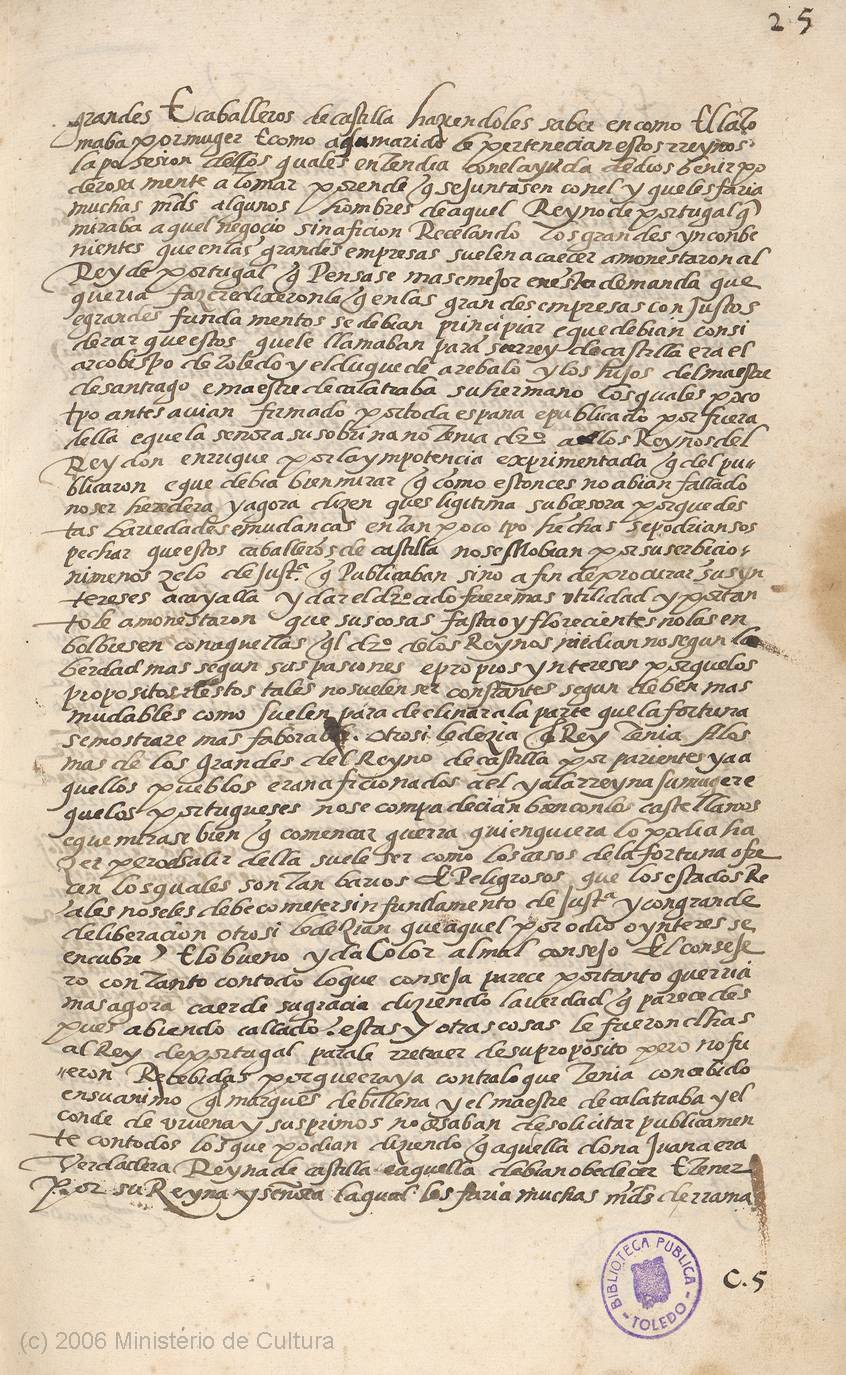 25
grandes E caballeros de castilla haziendoles saber en como El la to
maba por muger E como a su marido le pertenecian estos rreynos
la posesion dellos quales entendia con el ayuda de dios benir po
derosa mente a tomar porende q se juntasen con el y que les faria
muchas mds algunos hombres de aquel Reyno de portugal q
miraba aquel negocio sin aficion Recelando los grandes ynconbe
nientes que en las grandes empresas suelen acaecer amonestaron al
Rey de portugal q Pensase mas e mejor en esta demanda que
queria fazer edixeronle q en las grandes empresas con Justos
e grandes fundamentos se debian principiar e que debian consi
derar que estos que le llamaban para ser rey de castilla era el
arcobispo de toledo y el duque de arebalo y los hijos del maestre
de santiago e maestre de calatraba su hermano los quales poco
tpo antes avian firmado por toda espana e publicado por fuera
della e que la senora su sobrina no tenia dro a los Reynos del
Rey don enrrique por la ympotencia exprimentada q del pu
blicaron e que debia bien mirar q como estonces no abian fallado
no ser heredera y agora dizen ques ligitima subcesora porque des
tas bariedades e mudancas en tan poco tpo hechas se podrian sos
pechar que estos caballeros de castilla no se mobian por su serbicio
ni menos zelo de Justa q Publicaban sino a fin de procurar sus yn
tereses aca y alla y dar el dro ado fuere mas utilidad y portan
to le amonestaron que sus cosas fasta oy florecientes no las en
bolbiesen con aquellas ql dro de los Reynos median no segun la
berdad mas segun sus pasiones e propios yntereses porque los
propositos destos tales no suelen ser constantes segun deben mas
mudables como suelen para declinar a la parte que la fortuna
se mostrare mas faborable. otrosi le dezia q Rey tenia a los
mas de los grandes del Reyno de castilla por parientes y a a
quellos pueblos eran aficionados a el y a la rreyna su muger e
que los portugueses no se compadecian bien con los castellanos
e que mirase bien q comencar guerra quien quiera lo podia ha
zer pero el salir della suele ser como los casos de la fortuna ofre
cen los quales son tan barios E Peligrosos que los estados Re
ales no se les debe cometer sin fundamento de Justa y con grande
deliberacion otrosi le dezian que aquel por odio o ynteres se
encubre E lo bueno y da Color al mal consejo El conseje
ro con tanto con todo lo que conseja parece por tanto querria
mas agora caer de su gracia diziendo la verdad q parece des
pues abiendo callado. estas y otras cosas le fueron dhas
al Rey de portugal para le rretraer de su proposito pero no fu
eron Recebidas porque era ya contra lo que tenia concebido
en su animo q marques de billena y el maestre de calatraba y el
conde de vruena y sus primos no cesaban de solicitar publicamen
te con todos los que podian dizendo q aquella dona Juana era
verdadera Reyna de castilla e aquella debian obedecer E tener
Por su Reyna y senora la qual les faria muchas mds derrama
C.5
BIBLIOTECA PUBLICA
- TOLEDO -
(c) 2006 Ministério de Cultura